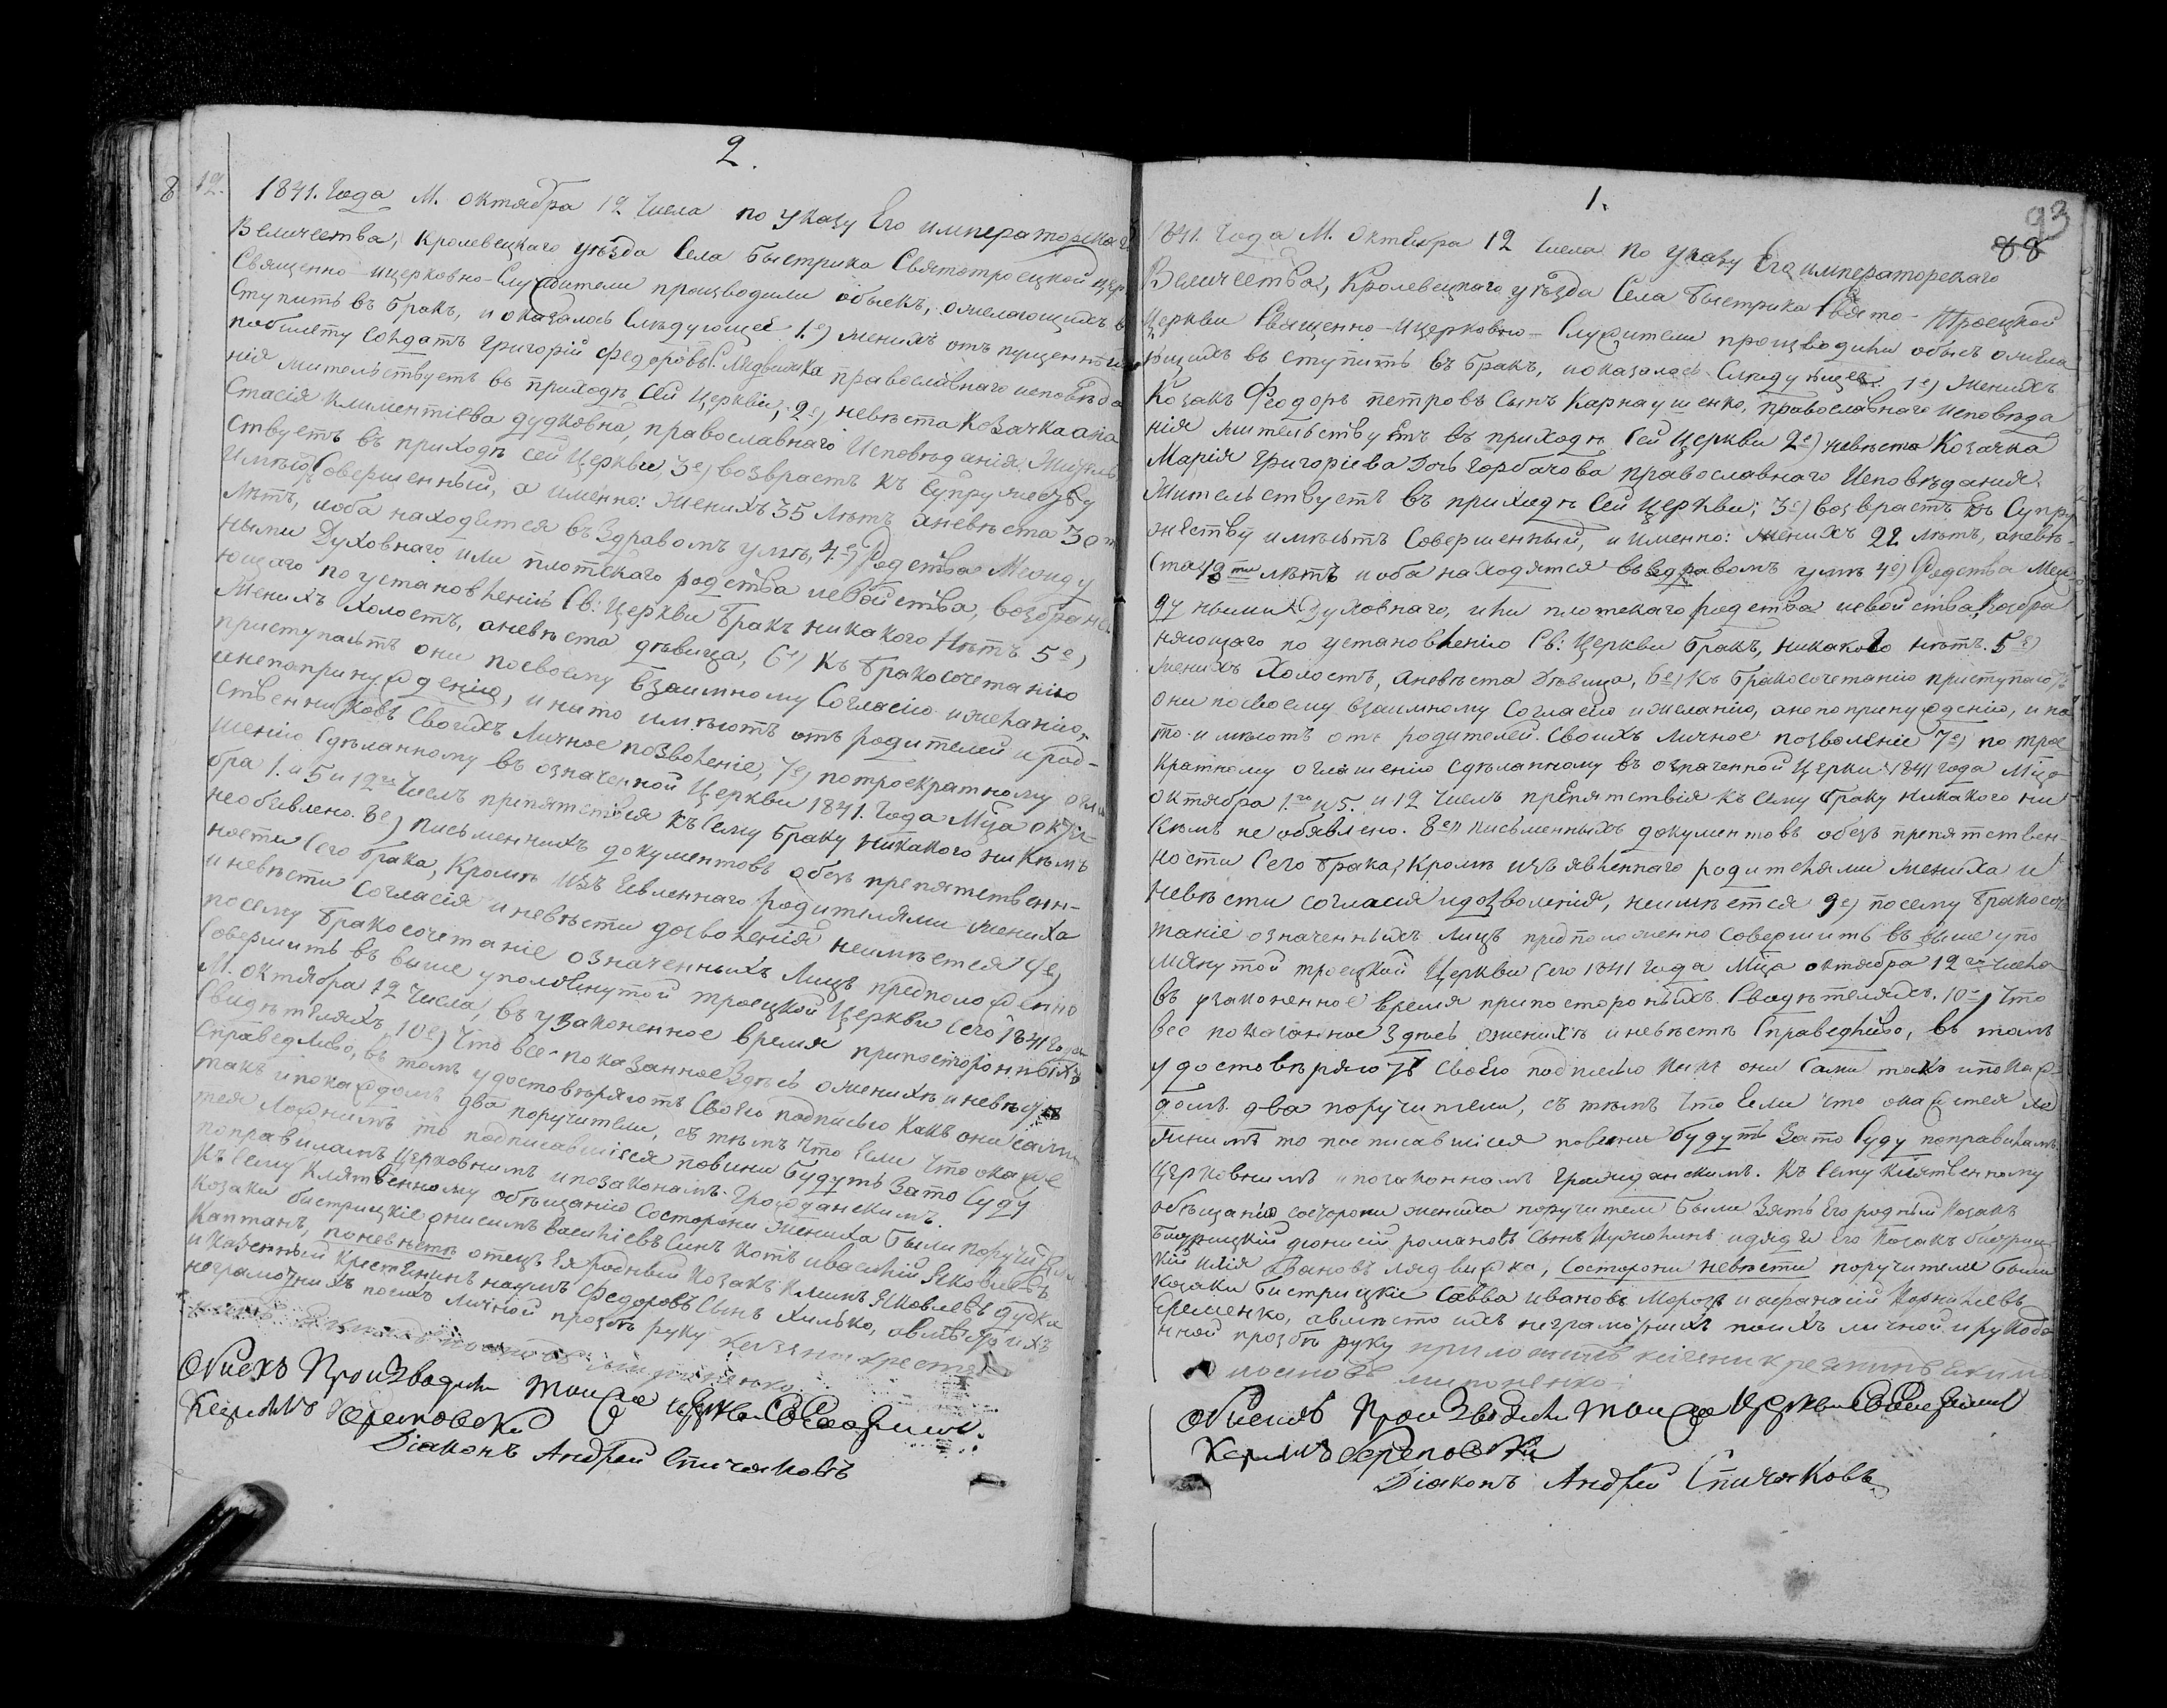 2.
8 12.
1841. Года М. Октября 12 Числа по указу Его императорскаго
Величества, Кролевецкаго уѣзда Села Быстрика Святотроецкой цер
Священно-ицерковно-Служители производили обыскъ, ожелающихъ в
ступить въ бракъ, и оказалось Слѣдующее 1.е) женихъ отъ пущенный
побилету Солдатъ Григорій Федоровъ С. Лядвижка православнаго исповѣда
нія жительствуетъ въ приходѣ Сей Церкви, 2е) невѣста Козачка ана
стасія климентіева дудковна, православнаго Исповѣданія, Житель
ствуетъ въ приходѣ сей Церкви, 3е) возврастъ къ Супружеству
имѣютъ Совершенный, а именно: женихъ 35 Лѣтъ аневѣста 30
лѣтъ, иоба находятся въ Здравомъ умѣ, 4.е) Родства Между
ными Духовнаго или плотскаго родства исвойства, возбраня
ющаго по установленію Св: Церкви бракъ никакого Нѣтъ 5е)
женихъ холостъ, аневѣста дѣвица, 6е) къ бракосочетанію
приступаютъ они посвоему взаимному Согласію ижеланію,
инепопринужденію, и нато имѣютъ отъ родителей и род-
ственниковъ Своихъ личное позволеніе, 7е) потроекратному огла
шенію Сдѣланному въ означенной Церкви 1841. года Мца октя
бра 1. и 5 и 12го Чиселъ препятствія къ Сему браку никакого никѣмъ
необявлено. 8е) письменныхъ документовъ обезъ препятственн-
ности Сего брака, Кромѣ изъ Явленнаго родителями жениха
и невѣсти Согласія и невѣсти дозволенія неимѣется 9е)
посему бракосочетаніе означенныхъ Лицъ предположенно
Совершить въ выше упомянутой троецкой Церкви Сего 1841 года
М. октября 12 числа, въ узаконенное время припостороннихъ
Свидѣтеляхъ, 10е) Что все показанное Здѣсь ожених и невѣстѣ
справедливо, въ томъ удостовѣряютъ Своею подписью какъ они сами
такъ ипокаждомъ два поручители, съ тѣмъ что Если что окаже
тся ложнымъ то подписавшіеся повини будутъ Зато Суду
поправиламъ Церковнимъ изаконамъ Гражданскимъ.
къ Сему Клятвенному обѣщанію Состорони Жениха были поручители
Козаки бистрицкіе онисимъ васильевъ Синъ Котъ ивасилій Яковлевъ
Каптанъ, поневѣстѣ отецъ Ея родный Козакъ Климъ Яковлевъ дудка
и Казенный крестянинъ наумъ Федоровъ Сынъ Хилько, авмѣсто ихъ
неграмотнихъ поихъ личной прозбѣ руку казенн крестя
Обискъ Производили тояжъ церкви Священник
Кириллъ Череповскій
Діаконъ Андрей Спичаковъ
1.
93
88
1841. Года М. Октября 12 Числа по указу Его императорскаго
Величества, Кролевецкаго уѣзда Села быстрика Свято-Троецкой
Церкви Священно-ицерковно-Служители производили обыскъ ожела
ющихъ въ ступить въ бракъ, иоказалось Слѣдующее. 1е) женихъ
Козакъ Феодоръ петровъ Сынъ Карнаушенко, православнаго исповѣда
нія жительствуетъ въ приходѣ Сей Церкви 2е) невѣста Козачка
Марія Григоріева Дочь Горбачова православнаго Исповѣданія,
Жительствуетъ въ приходѣ Сей Церкви; 3е) возврастъ къ Супру
жеству имѣютъ Совершенный, и именно: женихъ 22 лѣтъ, аневѣ-
ста 19ти лѣтъ иоба находятся въ здравомъ умѣ 4е) Родства Меж
ду ными Духовнаго, или плотскаго родства исвойства, возбра
няющаго по установленію Св: Церкви бракъ, никакого нѣтъ. 5е)
женихъ Холостъ, аневѣста Дѣвица, 6е) Къ бракосочетанію приступаютъ
они посвоему взаимному Согласію ижеланію, анепопринужденію, и на
то имѣютъ отъ родителей своихъ личное позволеніе 7е) по трое
кратному оглашенію Сдѣланному въ означенной Церкви 1841 года Мца
октября 1го и 5. и 12 чиселъ препятствія къ Сему браку никакого ни
Кѣмъ не обявлено. 8е) письменныхъ документовъ обезъ препятствен-
ности Сего брака, Кромѣ изъявленнаго родителями жениха и
невѣсти согласія идозволенія, неимѣется 9е) посему бракосоче
таніе означенныхъ лицъ предположенно совершить въ выше упо
мянутой троецкой Церкви Сего 1841 года Мца октября 12го числа
въ узаконенное время припостороныхъ Свидѣтеляхъ. 10е) Что
все показанное Здѣсь оженихѣ иневѣстѣ Справедливо, въ томъ
удостовѣряютъ своею подписью какъ они Сами такъ ипокаж
домъ два поручители, съ тѣмъ что Если что окажется ло
жнимъ то подписавшіеся повини будутъ Зато Суду поправиламъ
Церковнимъ ипозаконамъ Гражданскимъ. Къ Сему Клятвенному
обѣщанію состорони жениха поручители были Зять Его родный Козакъ
Бистрицкій діонисій романовъ Сынъ идядя Его Козакъ бистриц
кій илія Ивановъ лядвижка, Состорони невѣсти поручители были
Козаки бистрицкіе Савва ивановъ Морозъ и афанасій Корнилевъ
Еременко, авмѣсто ихъ неграмотнихъ поихъ личной и рукода
нной прозбѣ руку приложилъ казени крестянинъ Екимъ
мироненко
Обискъ Производили тояжъ Церкви Священник
Кириллъ Череповскій
Діаконъ Андрей Спичаковъ